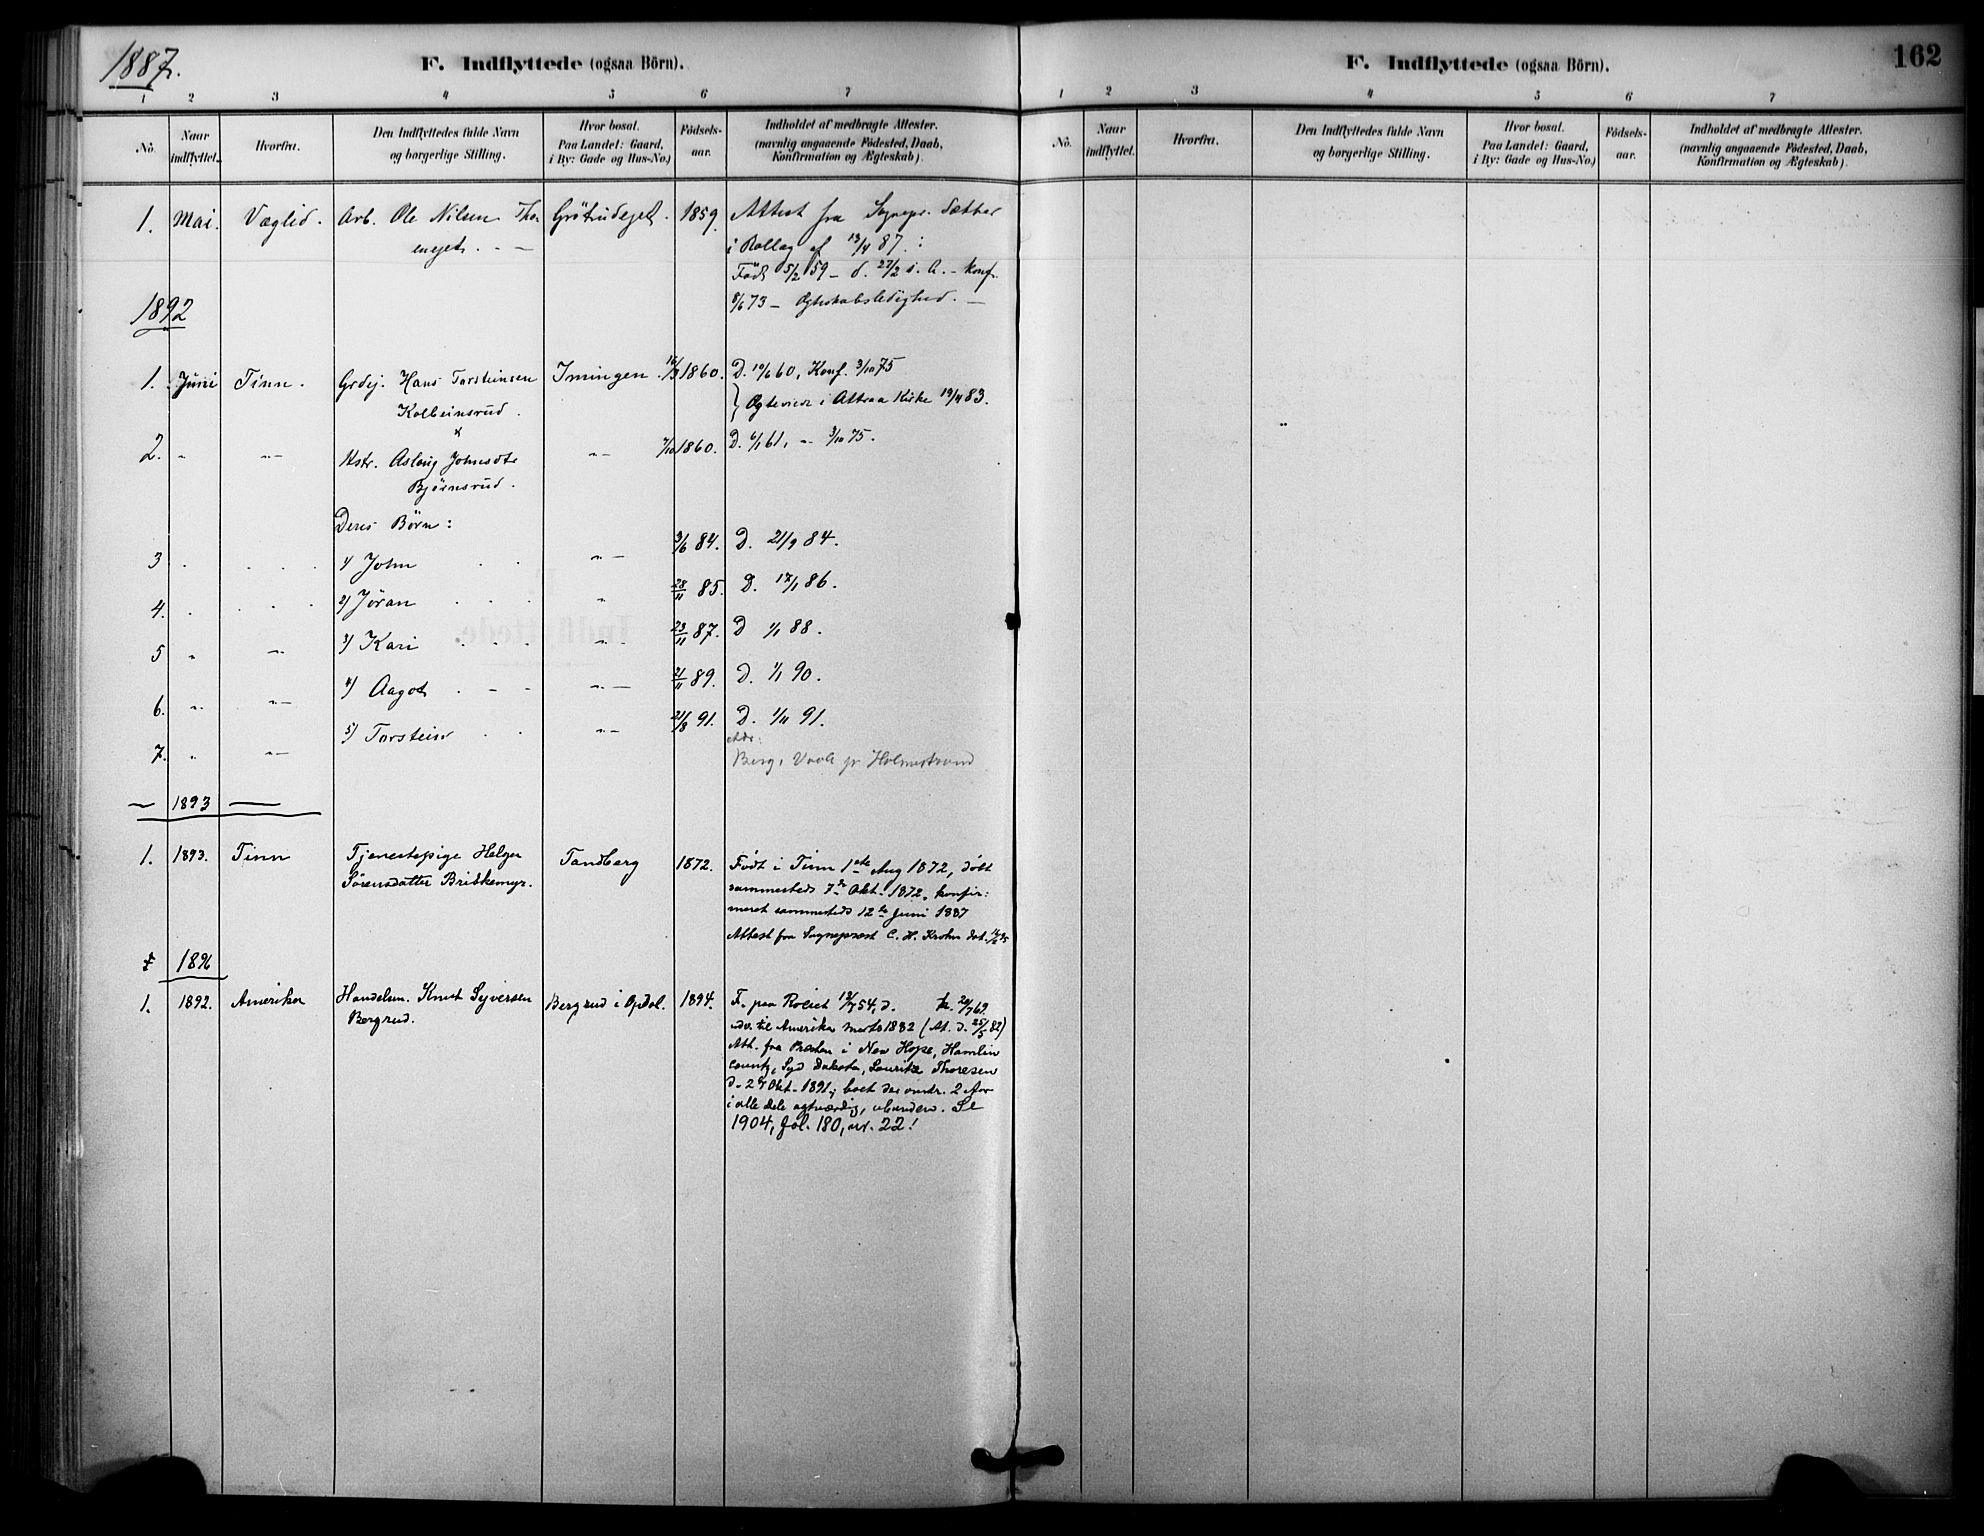 1887.
F. Indflyttede (ogsaa Börn).
1 2 3 4 5 6 7
No. Naar indflyttet. Hvorfra. Den Indflyttedes fulde Navn og borgerlige Stilling. Hvor bosat. Paa Landet: Gaard, i By: Gade og Hus-No.) Födsels-aar. Indholdet af medbragte Attester. (navnlig angaaende Födested, Daab, Konfirmation og Ægteskab).
1. Mai. Væglid. Arb. Ole Nilsen Grötrudejet. 1859. Attest fra Sognepr. Sætter
i Rollag af 13/4 87. :
Födt 5/2 59 - d. 27/2 s. A. - Konf.
8/6 73 - Ægteskabsledighed. -
1892
1. Juni Tinn. Grdej. Hans Torsteinsen Imingen. 16/3 1860. D. 10/6 60, Konf. 3/10 75
Kolbeinsrud. } Ægteviede i Attraa Kirke 19/4 83.
&
2. " " Kstr. Aslaug Johnsdtr " 7/10 1860. D. 6/1 61, " 3/10 75.
Bjørnsrud.
Deres Børn:
3 . . . . 1) John . . " 3/6 84. D. 21/9 84.
4. . . . . 2) Jøran . . . " 28/11 85. D. 17/1 86.
5 " " 3) Kari . . . " 23/11 87. D 1/1 88.
6. " " 4) Aagot . - - " 21/11 89. D. 1/1 90.
7. " " 5) Torstein . . " 21/8 91. D. 1/11 91.
Adr:
Berg, Vaale pr Holmestrand
1893
1. 1893. Tinn Tjenestepige Helger Tandberg 1872. Født i Tinn 1ste Aug 1872, døbt
Sørensdatter Briskemyr. sammesteds 7de Okt. 1872, konfir:
meret sammesteds 12te Juni 1887
Attest fra Sogneprest C. H. Krohn dat.
1896
1. 1892. Amerika Handelsm. Knut Syversen Bergrud i Opdal. 1894. F. paa Roliet 12/7 54, d. k. 20/7 69.
Bergrud. udv. til Amerika marts 1882 (At. d. 25/3 82)
Att. fra Presten i New Hope, Hamlin
county, Syd Dakota, Lauritz Thoresen
d. 27 Okt. 1891; boet der omtr. 2 Aar
i alle dele agtværdig, ubunden. Se
1904, fol. 180, nr. 22!
F. Indflyttede (ogsaa Börn).
162
1 2 3 4 5 6 7
No. Naar indflyttet. Hvorfra. Den Indflyttedes fulde Navn og borgerlige Stilling. Hvor bosat. Paa Landet: Gaard, i By: Gade og Hus-No.) Födsels-aar. Indholdet af medbragte Attester. (navnlig angaaende Födested, Daab, Konfirmation og Ægteskab).